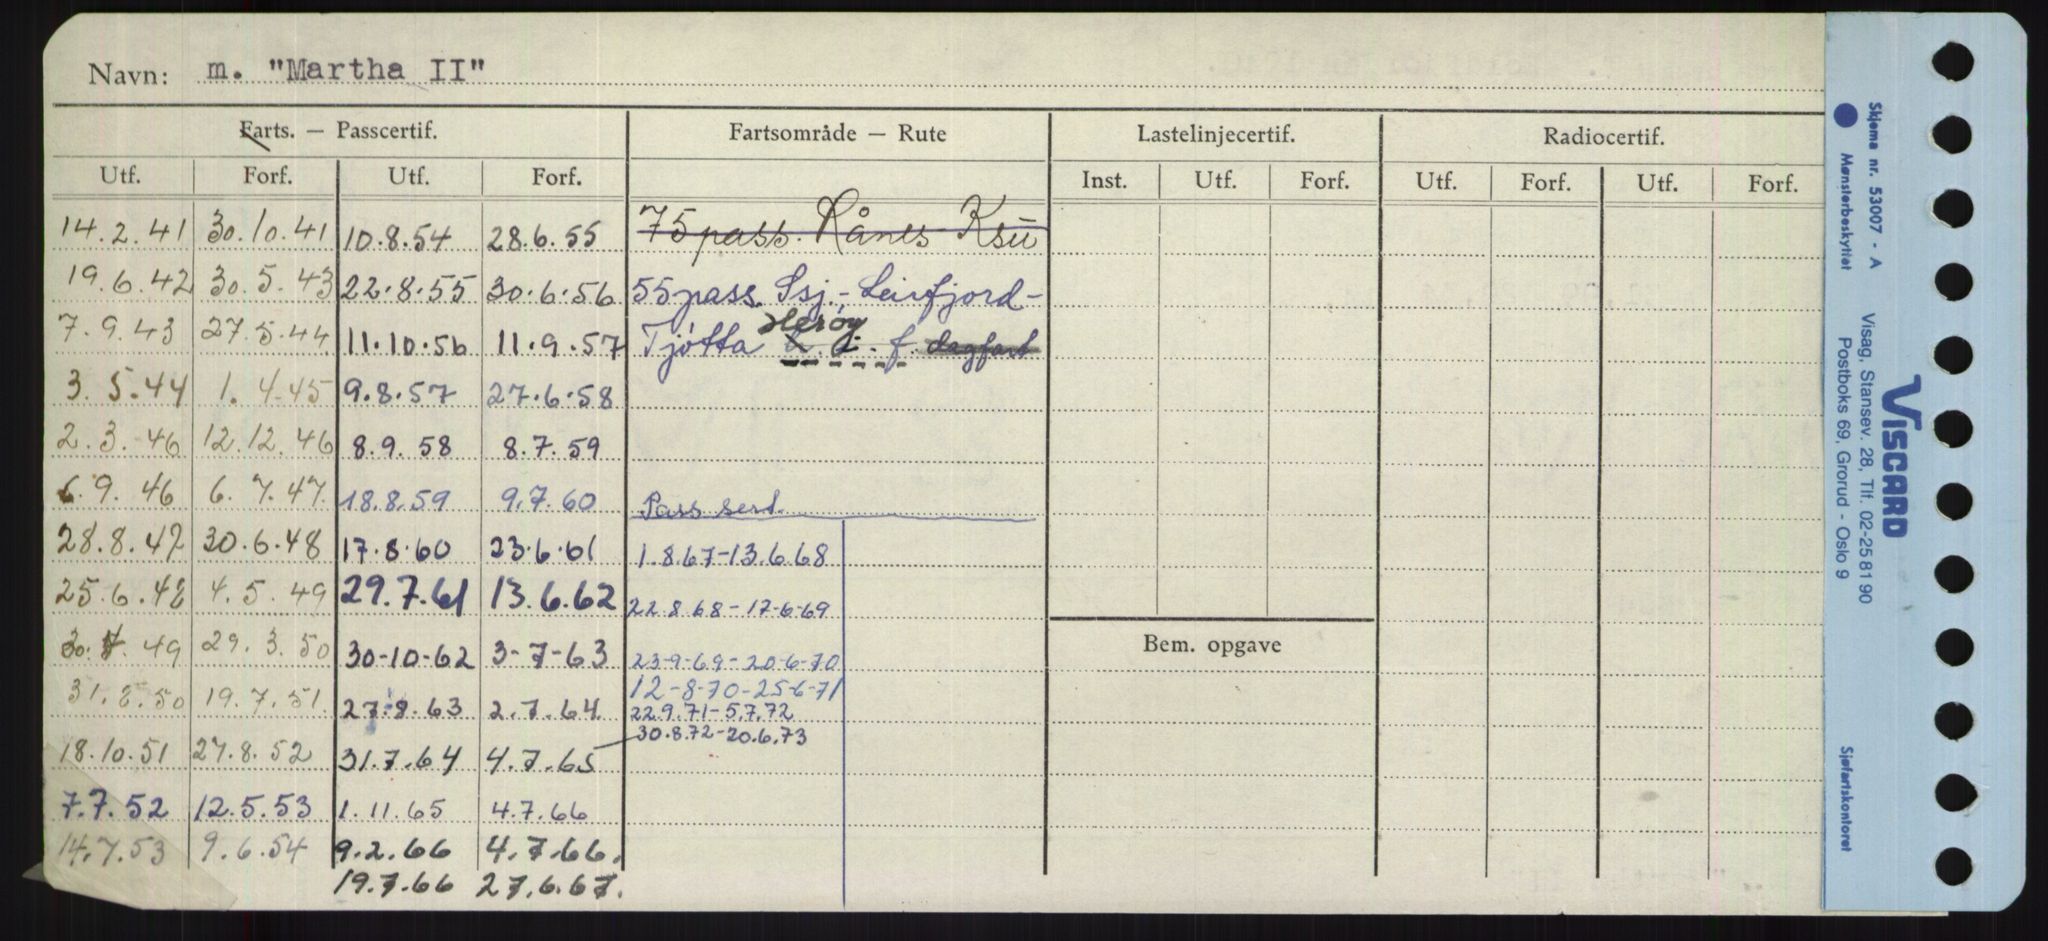 Navn: m. "Martha II"
Farts. — Passcertif. Fartsområde — Rute Lastelinjecertif. Radiocertif.
Utf. Forf. Utf. Forf. Inst. Utf. Forf. Utf. Forf. Utf. Forf.
14.2.41 30.10.41 10.8.54 28.6.55 75 pass. Rånes
19.6.42 30.5.43 22.8.55 30.6.56 55 pass. Ssj.- Leirfjord-
Herøy
7.9.43 27.5.44 11.10.56 11.9.57 Tjøtta f. dagfart
3.5.44 1.4.45 9.8.57 27.6.58
2.3.46 12.12.46 8.9.58 8.7.59
6.9.46 6.7.47 18.8.59 9.7.60 Pass sert.
28.8.47 30.6.48 17.8.60 23.6.61 1.8.67-13.6.68
25.6.48 4.5.49 29.7.61 13.6.62 22.8.68-17-6-69
49 29.3.50 30-10-62 3-7-63 23-9-69-20-6-70
12-8-70-25-6-71
31.8.50 19.7.51 27.8.63 2.7.64 22.9.71-5.7.72
30.8.72-20.6.73
18.10.51 27.8.52 31.7.64 4.7.65
7.7.52 12.5.53 1.11.65 4.7.66
14.7.53 9.6.54 9.2.66 4.7.66.
19.7.66 27.6.67.
Bem. opgave
Skjema nr. 53007 - A
Mønsterbeskyttet
VISCARD
Visag, Stansev. 28, Tlf. 02-25 81 90
Postboks 69, Grorud - Oslo 9
Sjøfartskontoret